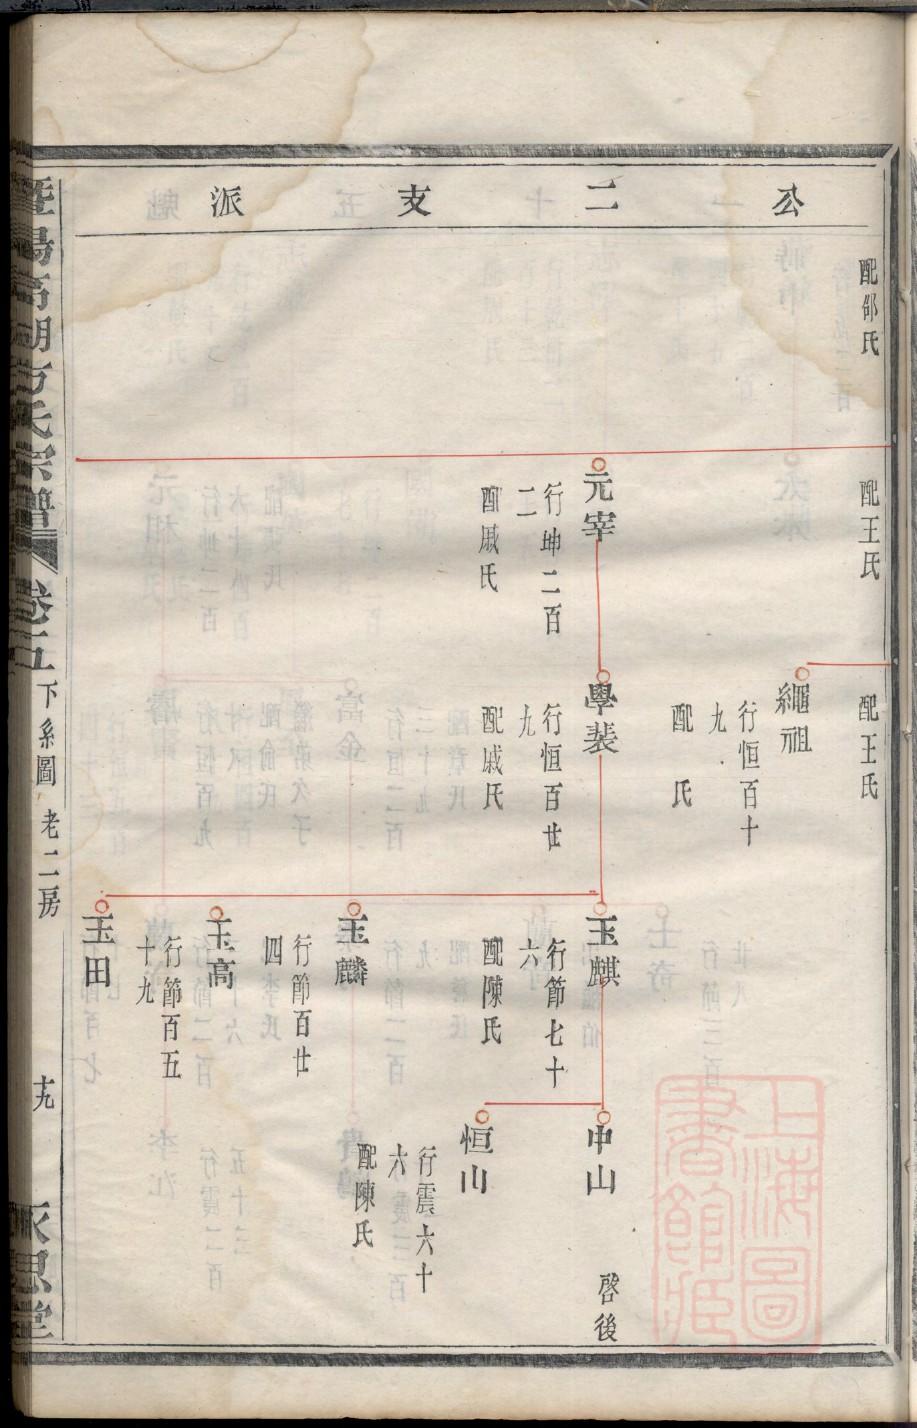 公二支派
配邵氏
配王氏
配王氏
繩祖
行恒百十
九
配　氏
元宰
行坤二百
二
配戚氏
學裴
行恒百廿
九
配戚氏
玉麒
行節七十
六
配陳氏
中山
啓後
恒山
行震六十
六
配陳氏
玉麟
行節百廿
四
玉高
行節百五
十九
玉田
暨陽高湖方氏宗譜
卷五
下系圖
老二房
十九
永思堂
上海圖
書館藏